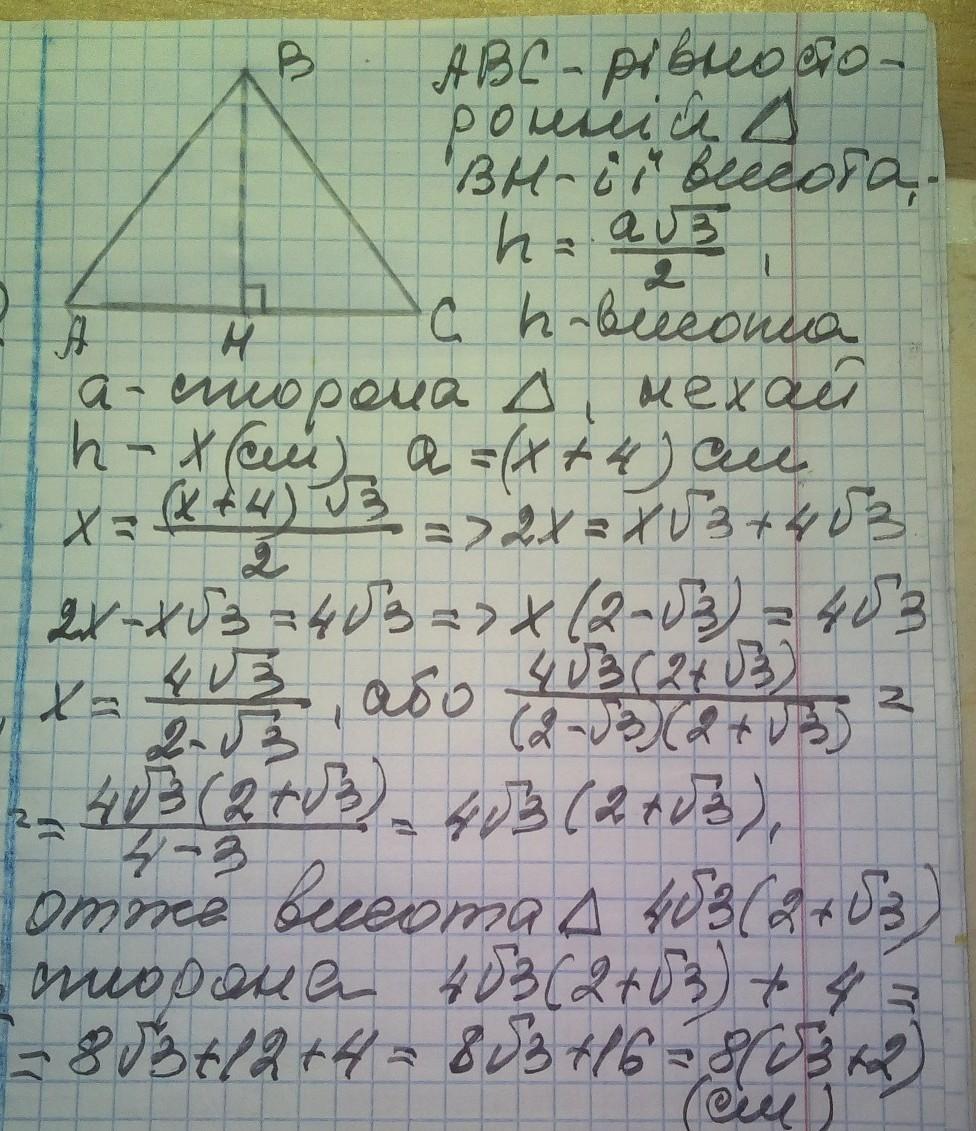 B
ABC - рівносто-
ронній Δ
BH - її висота,
h = a√3/2,
A H C h - висота
a - сторона Δ, нехай
h - x (см) a = (x + 4) см
x = (x + 4)√3/2 => 2x = x√3 + 4√3
2x - x√3 = 4√3 => x(2 - √3) = 4√3
x = 4√3/2 - √3, або 4√3(2 + √3)/(2 - √3)(2 + √3) =
= 4√3(2 + √3)/4 - 3 = 4√3(2 + √3),
отже висота Δ 4√3(2 + √3)
сторона 4√3(2 + √3) + 4 =
= 8√3 + 12 + 4 = 8√3 + 16 = 8(√3 + 2)
(см)